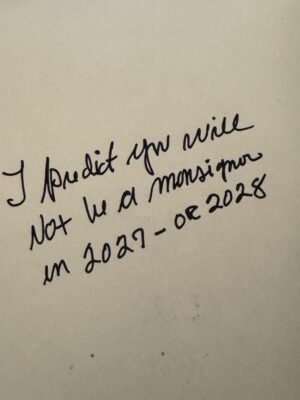 I predict you will
Not be a monsignor
in 2027 - OR 2028